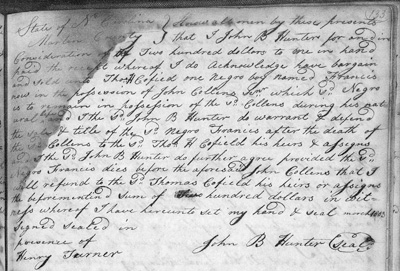 State of N Carolina } Know all men by these presents 163
Martin County } that I John B Hunter for and in
Consideration of Two hundred dollars to one in hand
paid the receit whereof I do Acknowledge have bargain
and Sold unto Thos H Cofield one Negro boy named Francis
now in the possession of John Collens Snr which Sd Negro
is to remain in possession of the Sd Collens during his nat
ural I the Sd John B Hunter do warrant & defend
the & title of the Sd Negro Francis after the death of
Sd Collens to the Sd Thos H Cofield his heirs & assigns
the Sd John B Hunter do further agree provided the Sd
Negro Francis dies before the aforesaid John Collens that I
will refund to the Sd Thomas Cofield his heirs or assigns
the beforementined Sum of Two hundred dollars in Wit-
ness whereof I have hereunto set my hand & Seal march
Signed Sealed in
presence of John B Hunter (Seal)
Henry Turner